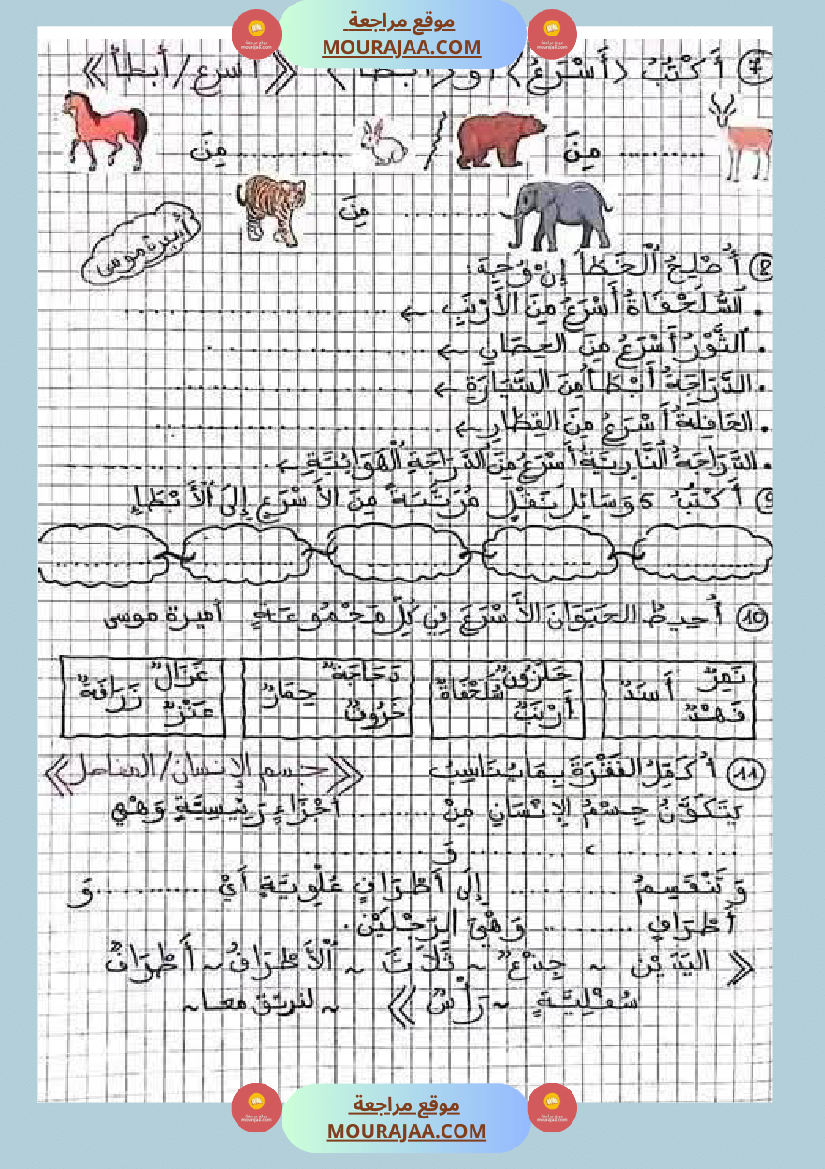 موقع مراجعة
MOURAJAA.COM
7 أَكْتُبُ ⟨أَسْرَعُ⟩ أو ⟨أَبْطَأُ⟩ «أسرع/أبطأ»
............ مِنَ / ............ مِنَ
............ مِنَ
أميرة موسى
8 أُصْلِحُ ٱلْخَطَأَ إِنْ وُجِدَ:
. ٱلسُّلَحْفَاةُ أَسْرَعُ مِنَ الأَرْنَبِ ← ............
. ٱلثَّوْرُ أَسْرَعُ مِنَ الحِصَانِ ← ............
. الدَّرَاجَةُ أَبْطَأُ مِنَ السَّيَارَةِ ← ............
. الحَافِلَةُ أَسْرَعُ مِنَ القِطَارِ ← ............
. الدَّرَاجَةُ ٱلنَّارِيَّةُ أَسْرَعُ مِنَ الدَّرَاجَةِ ٱلْهَوَائِيَّةِ ← ............
9 أَكْتُبُ 5 وَسَائِلِ نَقْلٍ مُرَتَّبَةً مِنَ الأَسْرَعِ إِلَى ٱلْأَبْطَإِ
10 أُحِيطُ الحَيَوَانَ الأَسْرَعَ فِي كُلِّ مَجْمُوعَةٍ أميرة موسى
نَمِرٌ أَسَدٌ فَهْدٌ
حَلَزُونٌ سُلَحْفَاةٌ أَرْنَبٌ
دَجَاجَةٌ حِمَارٌ خَرُوفٌ
غَزَالٌ زَرَافَةٌ عَنْزٌ
11 أُكَمِّلُ الفَقْرَةَ بِمَا يُنَاسِبُ «جسم الإنسان/المفاصل»
يَتَكَوَّنُ جِسْمُ الإِنْسَانِ مِنْ ............ أَجْزَاءٍ رَئِيسِيَّةٍ وَهْيَ
............ ، ............ وَ ............
وَتَنْقَسِمُ ............ إِلَى أَطْرَافٍ عُلْوِيَّةٍ أَيْ ............ وَ
أَطْرَافٍ ............ وَهْيَ الرِّجْلَيْنِ .
« اليَدَيْنِ ~ جِذْعٌ ~ ثَلَاثَ ~ ٱلْأَطْرَافُ ~ أَطْرَافٌ
سُفْلِيَّةٍ ~ رَأْسٌ » ~ لنرتق معا ~
موقع مراجعة
MOURAJAA.COM